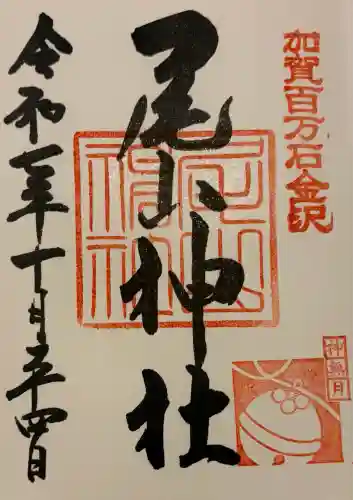 加賀百万石金沢
尾山神社
尾山神社
令和六年十月二十四日